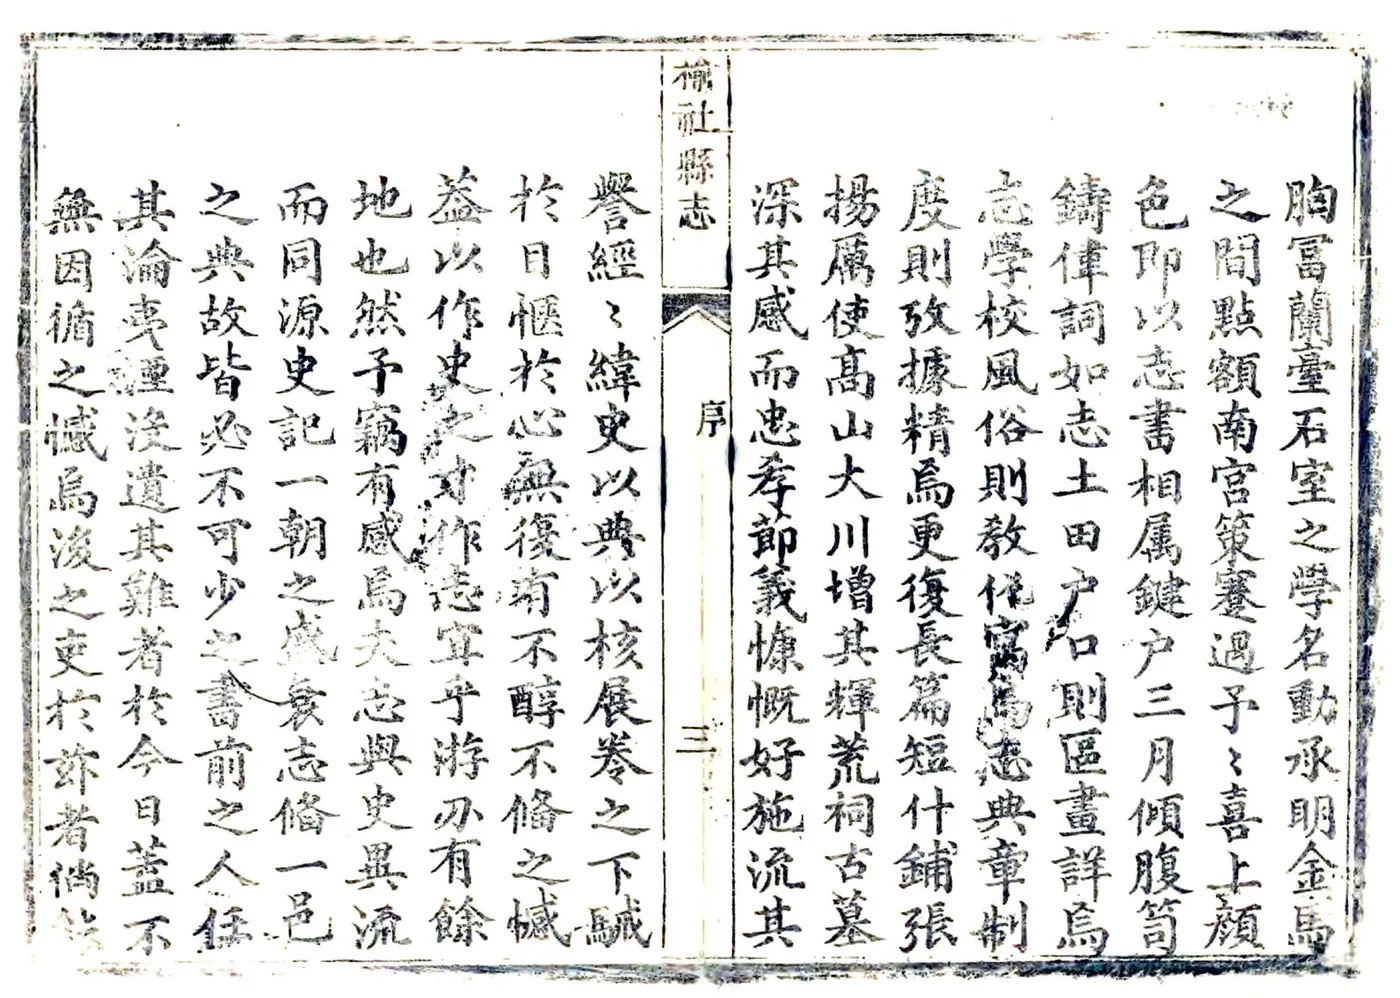 胸冨蘭臺石室之學名動承明金馬
之間點額南宮策蹇過予〻喜上顏
色即以志書相属鍵户三月傾腹笥
鑄偉詞如志土田户口則區畫詳焉
志學校風俗則教化寓焉志典章制
度則攷據精焉更復長篇短什鋪張
揚厲使髙山大川增其輝荒祠古墓
深其感而忠孝節義慷慨好施流其
榆社縣志
序
三
譽經〻緯史以典以核展卷之下駴
於目愜於心無復有不醇不偹之憾
葢以作史之才作志宜乎游刃有餘
地也然予竊有感焉夫志與史異流
而同源史記一朝之盛衰志偹一邑
之典故皆必不可少之書前之人任
其淪夷湮沒遺其難者於今日蓋不
無因循之憾焉後之吏於玆者倘能